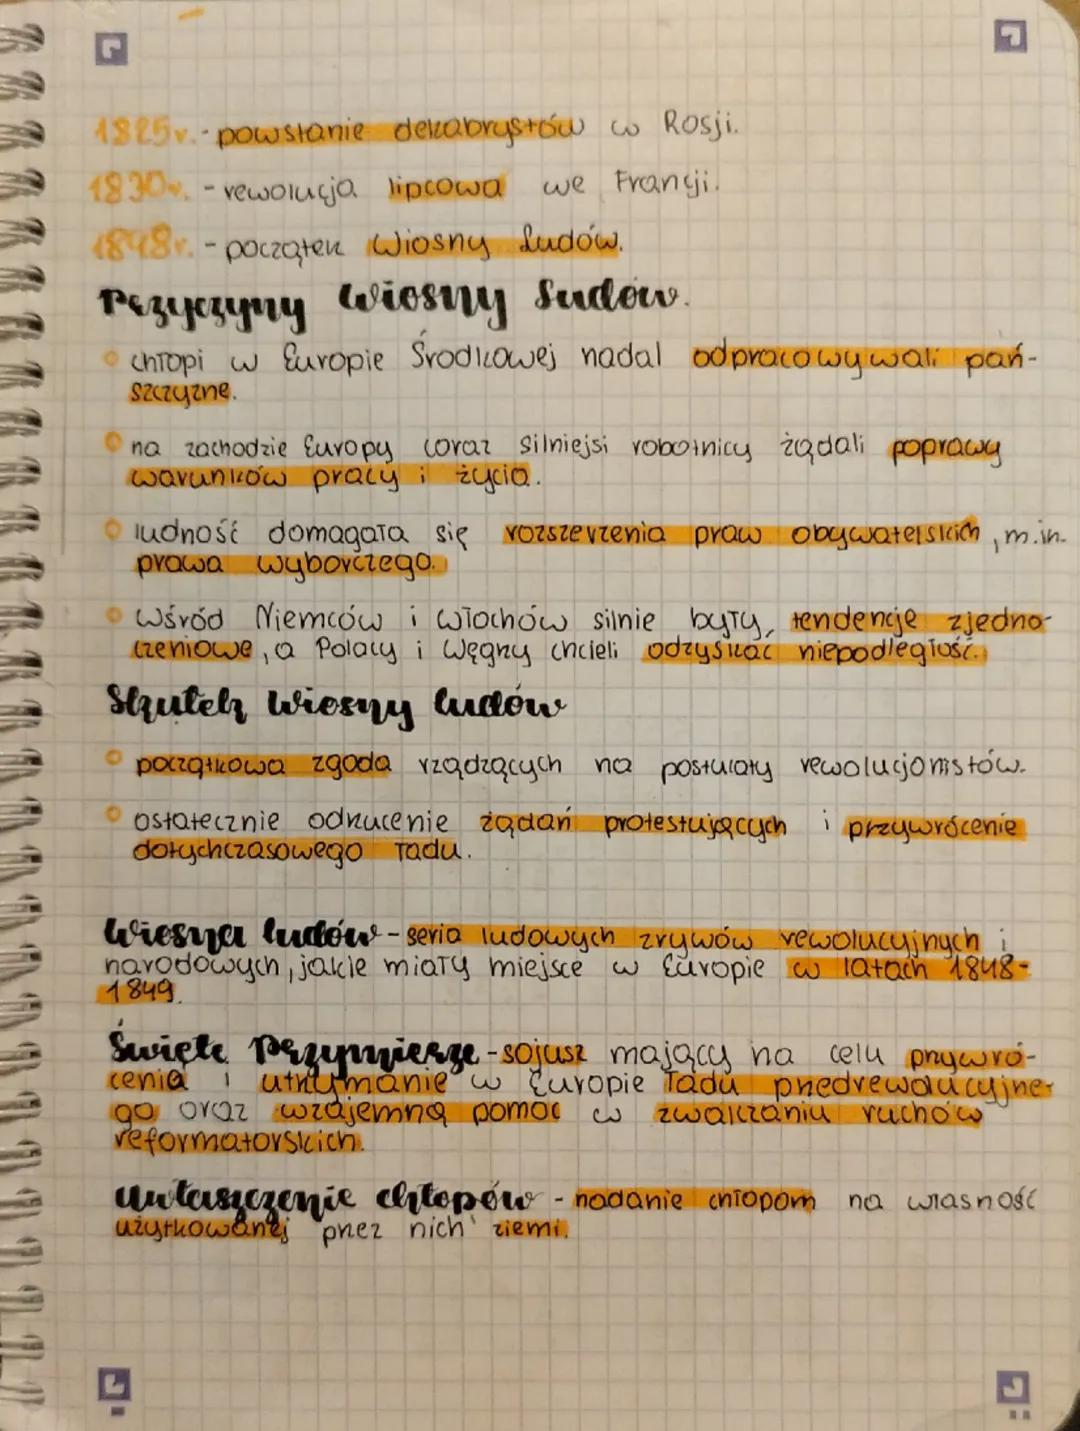 1825r. - powstanie dekabrystów w Rosji.
1830r. - rewolucja lipcowa we Francji.
1848r. - początek Wiosny Ludów.
Przyczyny Wiosny Ludów.
chłopi w Europie Środkowej nadal odpracowywali pań-
szczyznę.
na zachodzie Europy coraz silniejsi robotnicy żądali poprawy
warunków pracy i życia.
ludność domagała się rozszerzenia praw obywatelskich, m.in.
prawa wyborczego.
Wśród Niemców i Włochów silnie były, tendencje zjedno-
czeniowe, a Polacy i Węgrzy chcieli odzyskać niepodległość.
Skutek Wiosny Ludów
początkowa zgoda rządzących na postulaty rewolucjonistów.
ostatecznie odrzucenie żądań protestujących i przywrócenie
dotychczasowego ładu.
Wiosna Ludów - seria ludowych zrywów rewolucyjnych i
narodowych, jakie miały miejsce w Europie w latach 1848-
1849.
Święte Przymierze - sojusz mający na celu przywró-
cenia i utrzymanie w Europie ładu przedrewolucyjne-
go oraz wzajemną pomoc w zwalczaniu ruchów
reformatorskich.
Uwłaszczenie chłopów - nadanie chłopom na własność
użytkowanej przez nich ziemi.